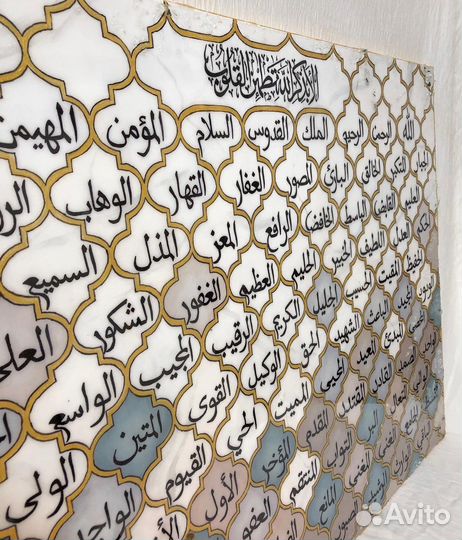 ألا بذكر الله تطمئن القلوب
الله الرحمن الرحيم الملك القدوس السلام المؤمن المهيمن
الجبار المتكبر الخالق البارئ المصور الغفار القهار الوهاب
العليم القابض الباسط الخافض الرافع المعز المذل السميع
الحكم العدل اللطيف الخبير الحليم العظيم الغفور الشكور العلي
الحفيظ المقيت الحسيب الجليل الكريم الرقيب المجيب الواسع
المجيد الباعث الشهيد الحق الوكيل القوي المتين الولي
المبدئ المعيد المحيي المميت الحي القيوم
الواحد الصمد القادر المقتدر المقدم المؤخر الأول
البر التواب المنتقم العفو
المغني المانع
Avito